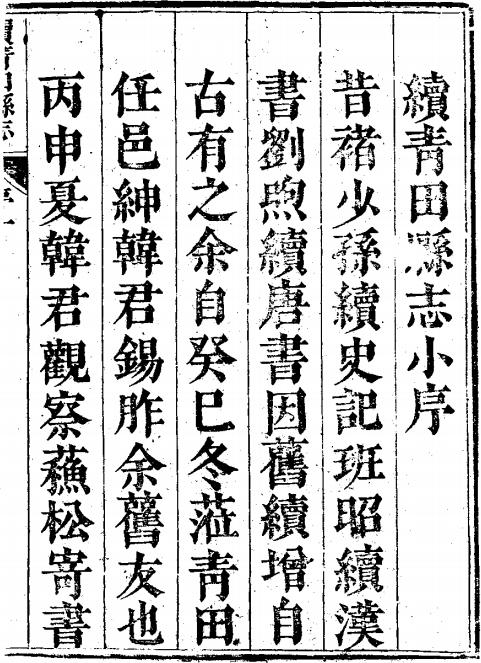 續青田縣志小序
昔褚少孫續史記班昭續漢
書劉煦續唐書因舊續增自
古有之余自癸巳冬蒞青田
任邑紳韓君錫胙余舊友也
丙申夏韓君觀察蘓松寄書
續青田縣志
序
一